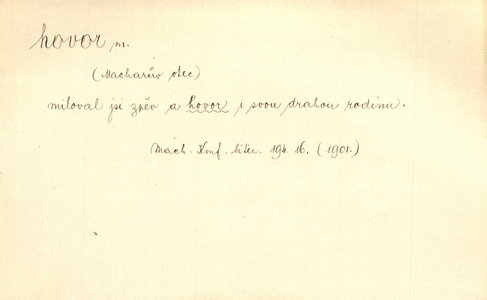 hovor m.
(Macharův otec)
miloval jsi zpěv a hovor i svou drahou rodinu.
Mach. Konf. liter. 194. 16. (1901.)